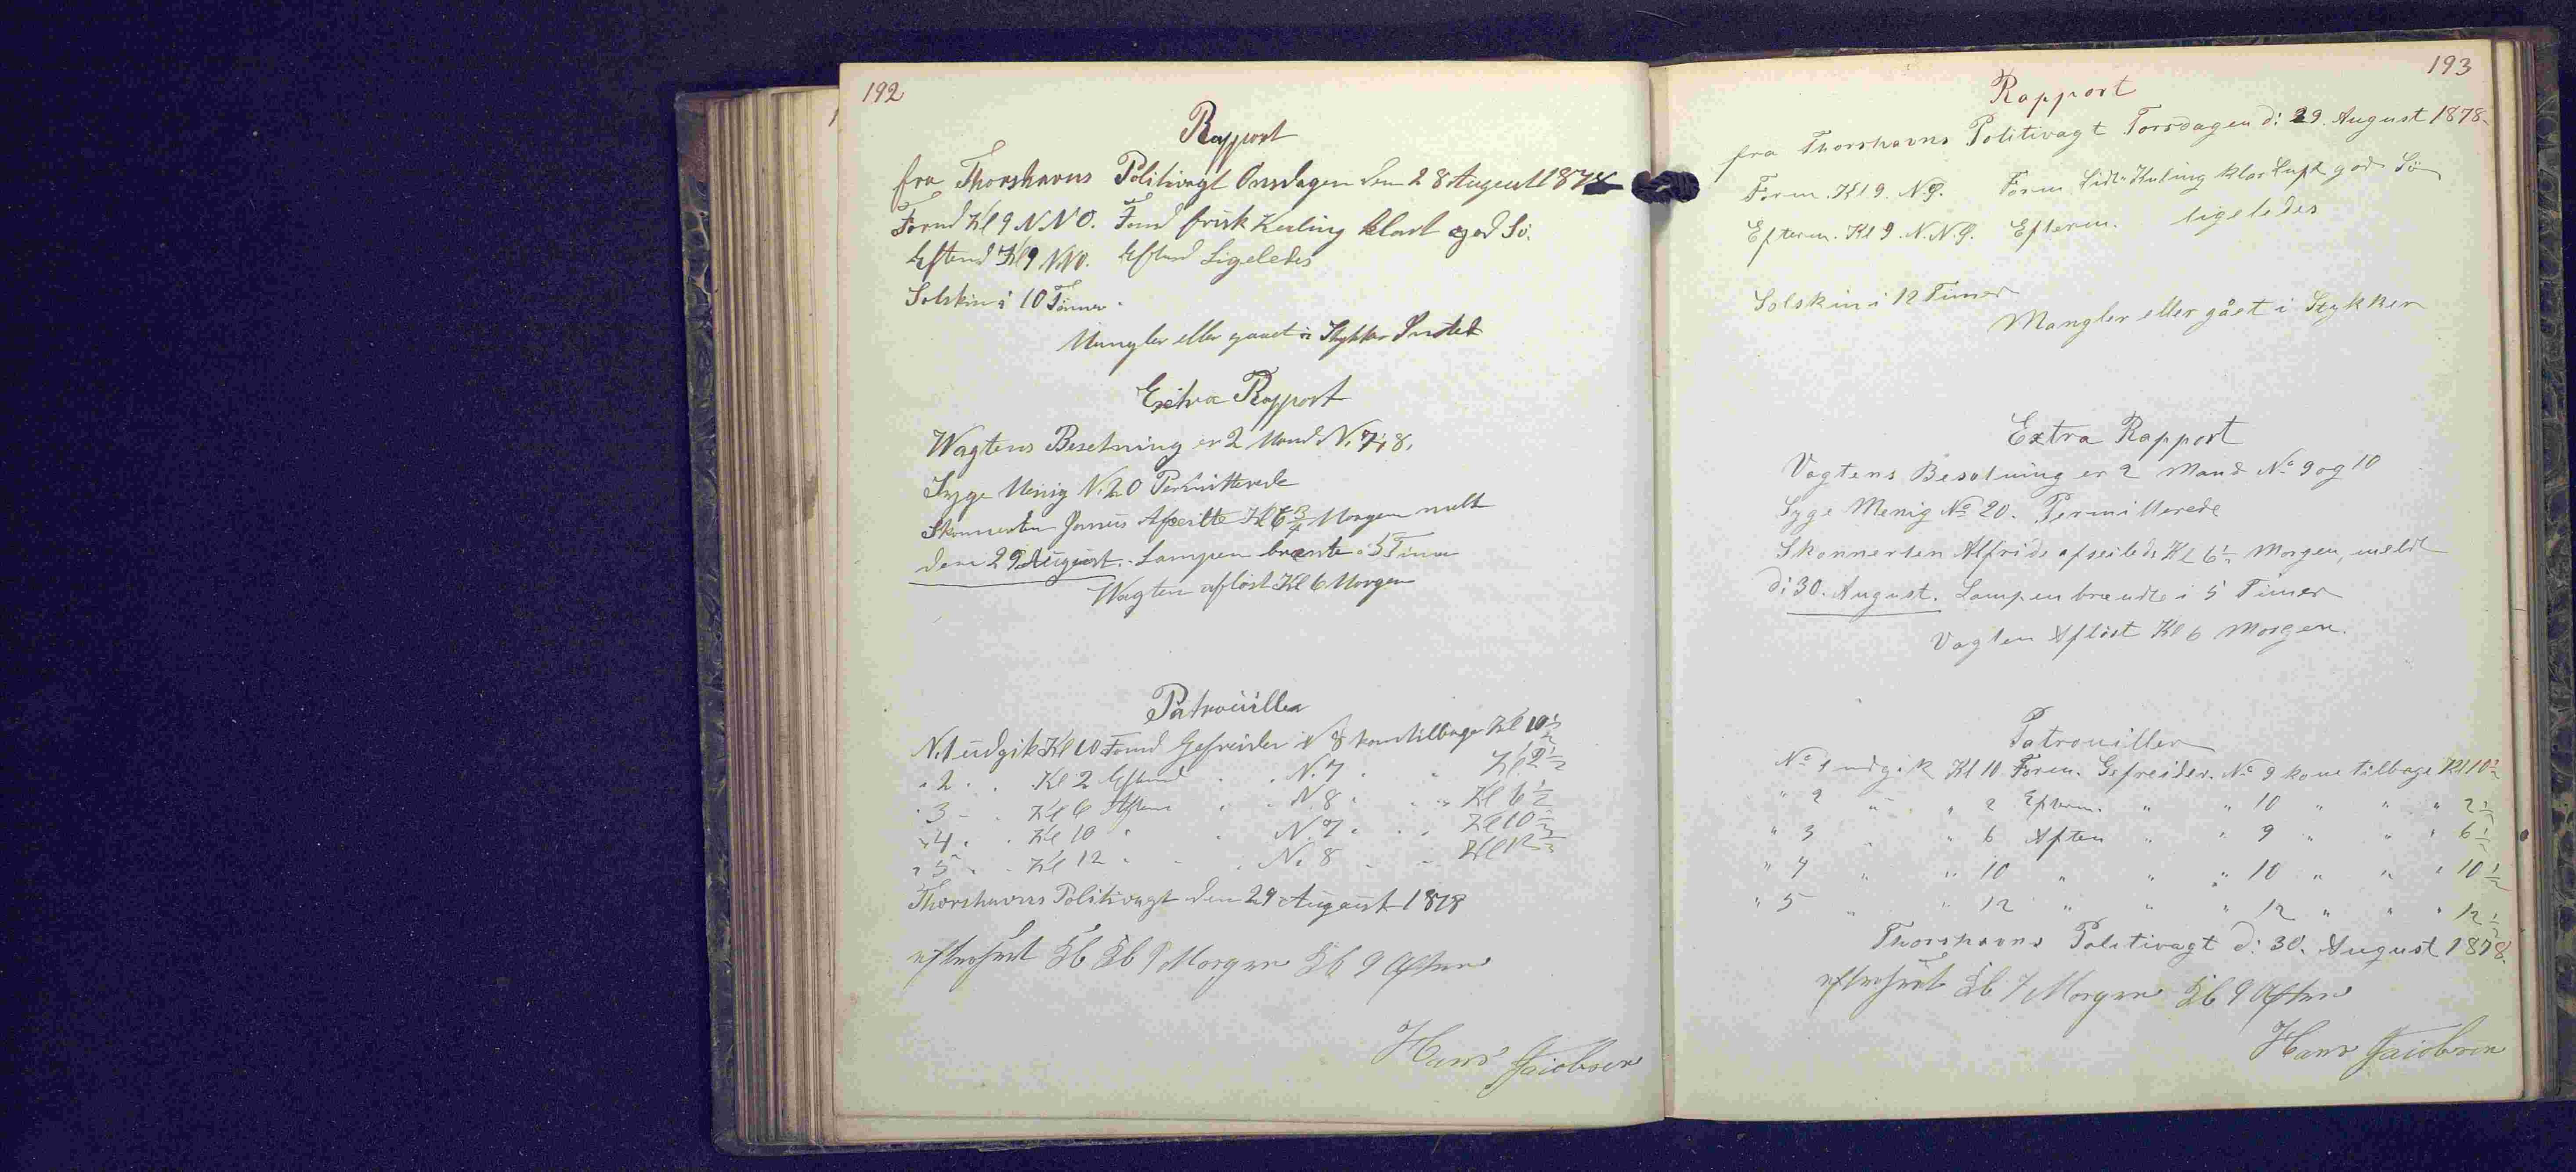 192
Rapport
fra Thorshavns Politivagt Onsdagen den 28 August 1878
Formd Kl 9 N N O. Formd frisk Kuling klart god Sö.
Eftermd Kl 9 NNO. Eftermd Ligeledes
Solskin i 10 Timer.
Mangler eller gaaet i Stykker Intet
Extra Rapport
Wagtens Besetning er 2 Mand N. 7, 8.
Syge Menig N. 20 Permitterede
Skonnerten Janus Afseilte Kl 6 Morgen melt
den 29 August. Lampen brænte i 5 Timer
Wagten aflöst Kl 6 Morgen
Patrouiller
N. 1 udgik Kl 10 Formd Gefreider N 8 kom tilbage Kl 10½
" 2 . . Kl 2 Eftermd . . N. 7 . . Kl. 2½
" 3 - . Kl 6 Aften . . N. 8 . . Kl 6½
" 4 . . Kl 10 " . N. 7 . . Kl 10½
" 5 . . Kl 12 . . . N. 8 . . Kl 12½
Thorshavns Politivagt den 29 August 1878
efterseet Kl Morgen Kl 9 Aften
Hans Jacobsen
193
Rapport
fra Thorshavns Politivagt Torsdagen d: 29. August 1878.
Form. Kl 9. N.Ø. Form Lidt Kuling klar Luft god Sö
Efterm. Kl 9. N.N.Ø. Efterm. ligeledes
Solskin i 12 Timer
Mangler eller gået i Stykker
Extra Rapport
Vagtens Besætning er 2 Mand No 9 og 10
Syge Menig No 20. Permitterede
Skonnerten Alfride afseilede Kl 6½ Morgen, meldt
d: 30. August. Lampen brændte i 5 Timer
Vagten Aflöst Kl 6 Morgen.
Patrouiller
No 1 udgik Kl 10 Form. Gefreider. No 9 kom tilbage Kl 10½
" 2 " " 2 Efterm. " " 10 " " " 2½
" 3 " " 6 Aften " " 9 " " " 6½
" 4 " " 10 " " " 10 " " " 10½
" 5 " " 12 " " " 12 " " " 12½
Thorshavns Politivagt d: 30. August 1878.
efterseet Kl 7 Morgen Kl 9 Aften
Hans Jacobsen